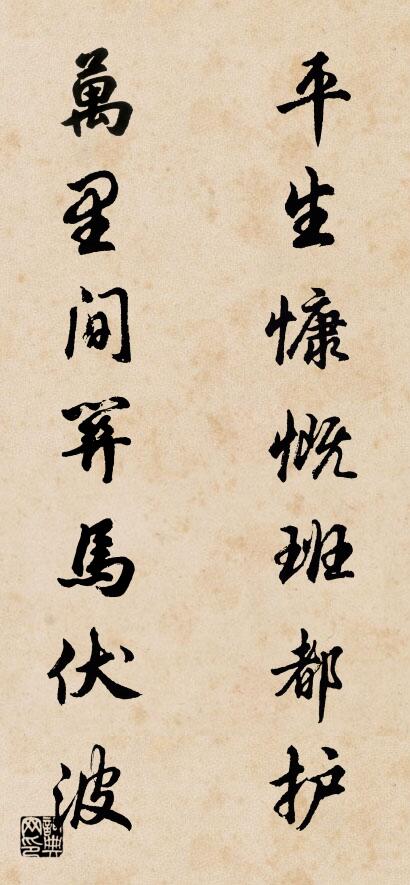 平生慷慨班都护
萬里間關馬伏波